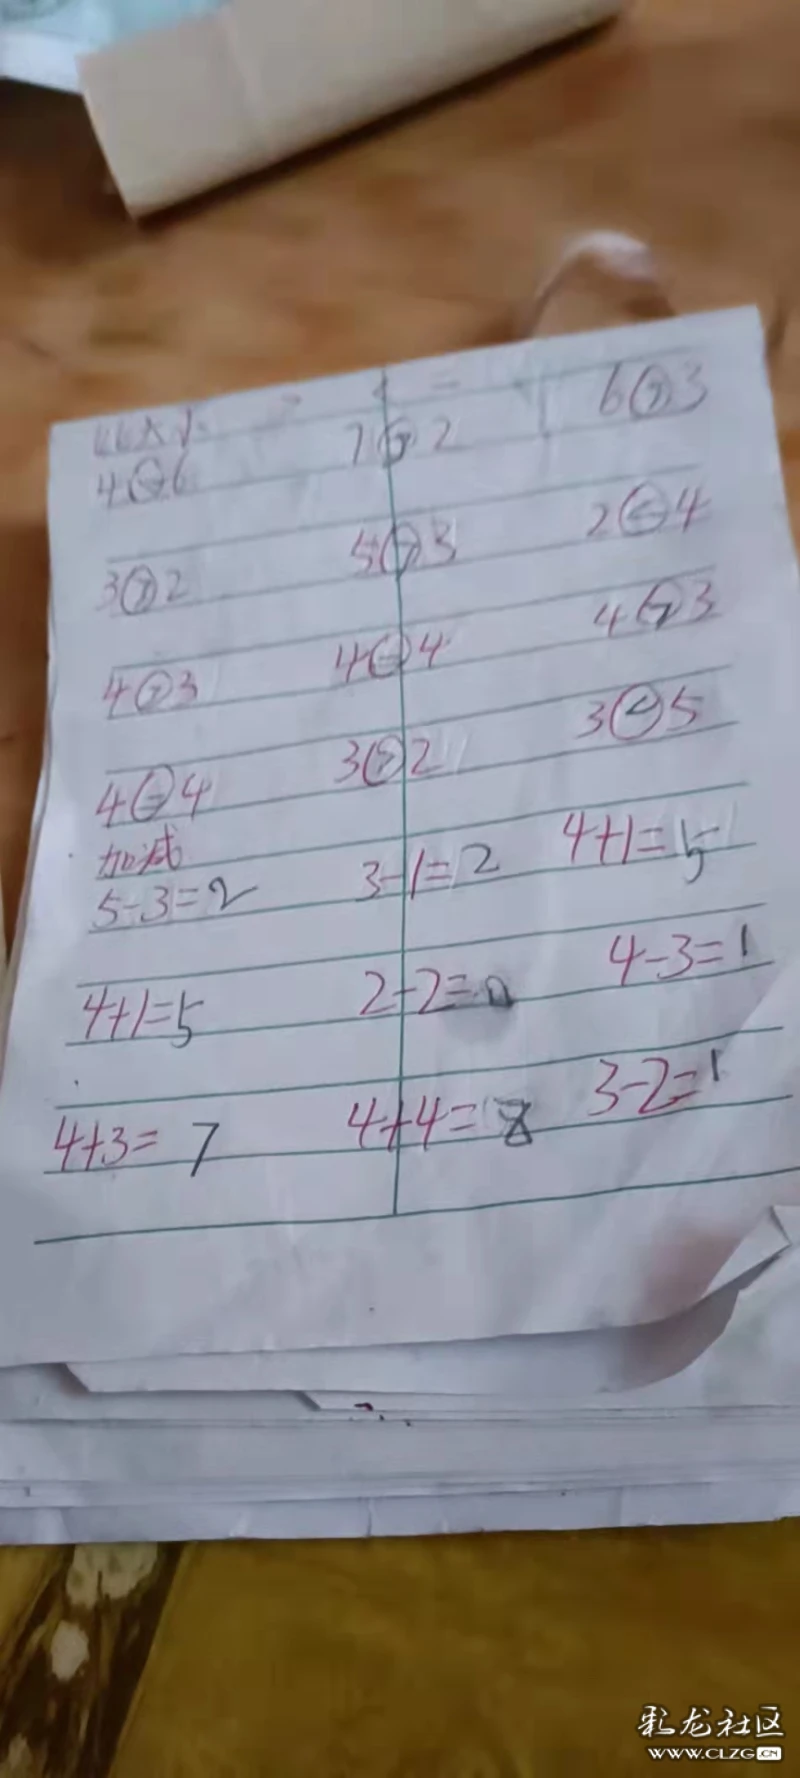 比大小 > < =
4 < 6 7 > 2 6 > 3
3 > 2 5 > 3 2 < 4
4 > 3 4 = 4 4 > 3
4 = 4 3 > 2 3 < 5
加减
5-3=2 3-1=2 4+1=5
4+1=5 2-2=0 4-3=1
4+3=7 4+4=8 3-2=1
彩龙社区
WWW.CLZG.CN